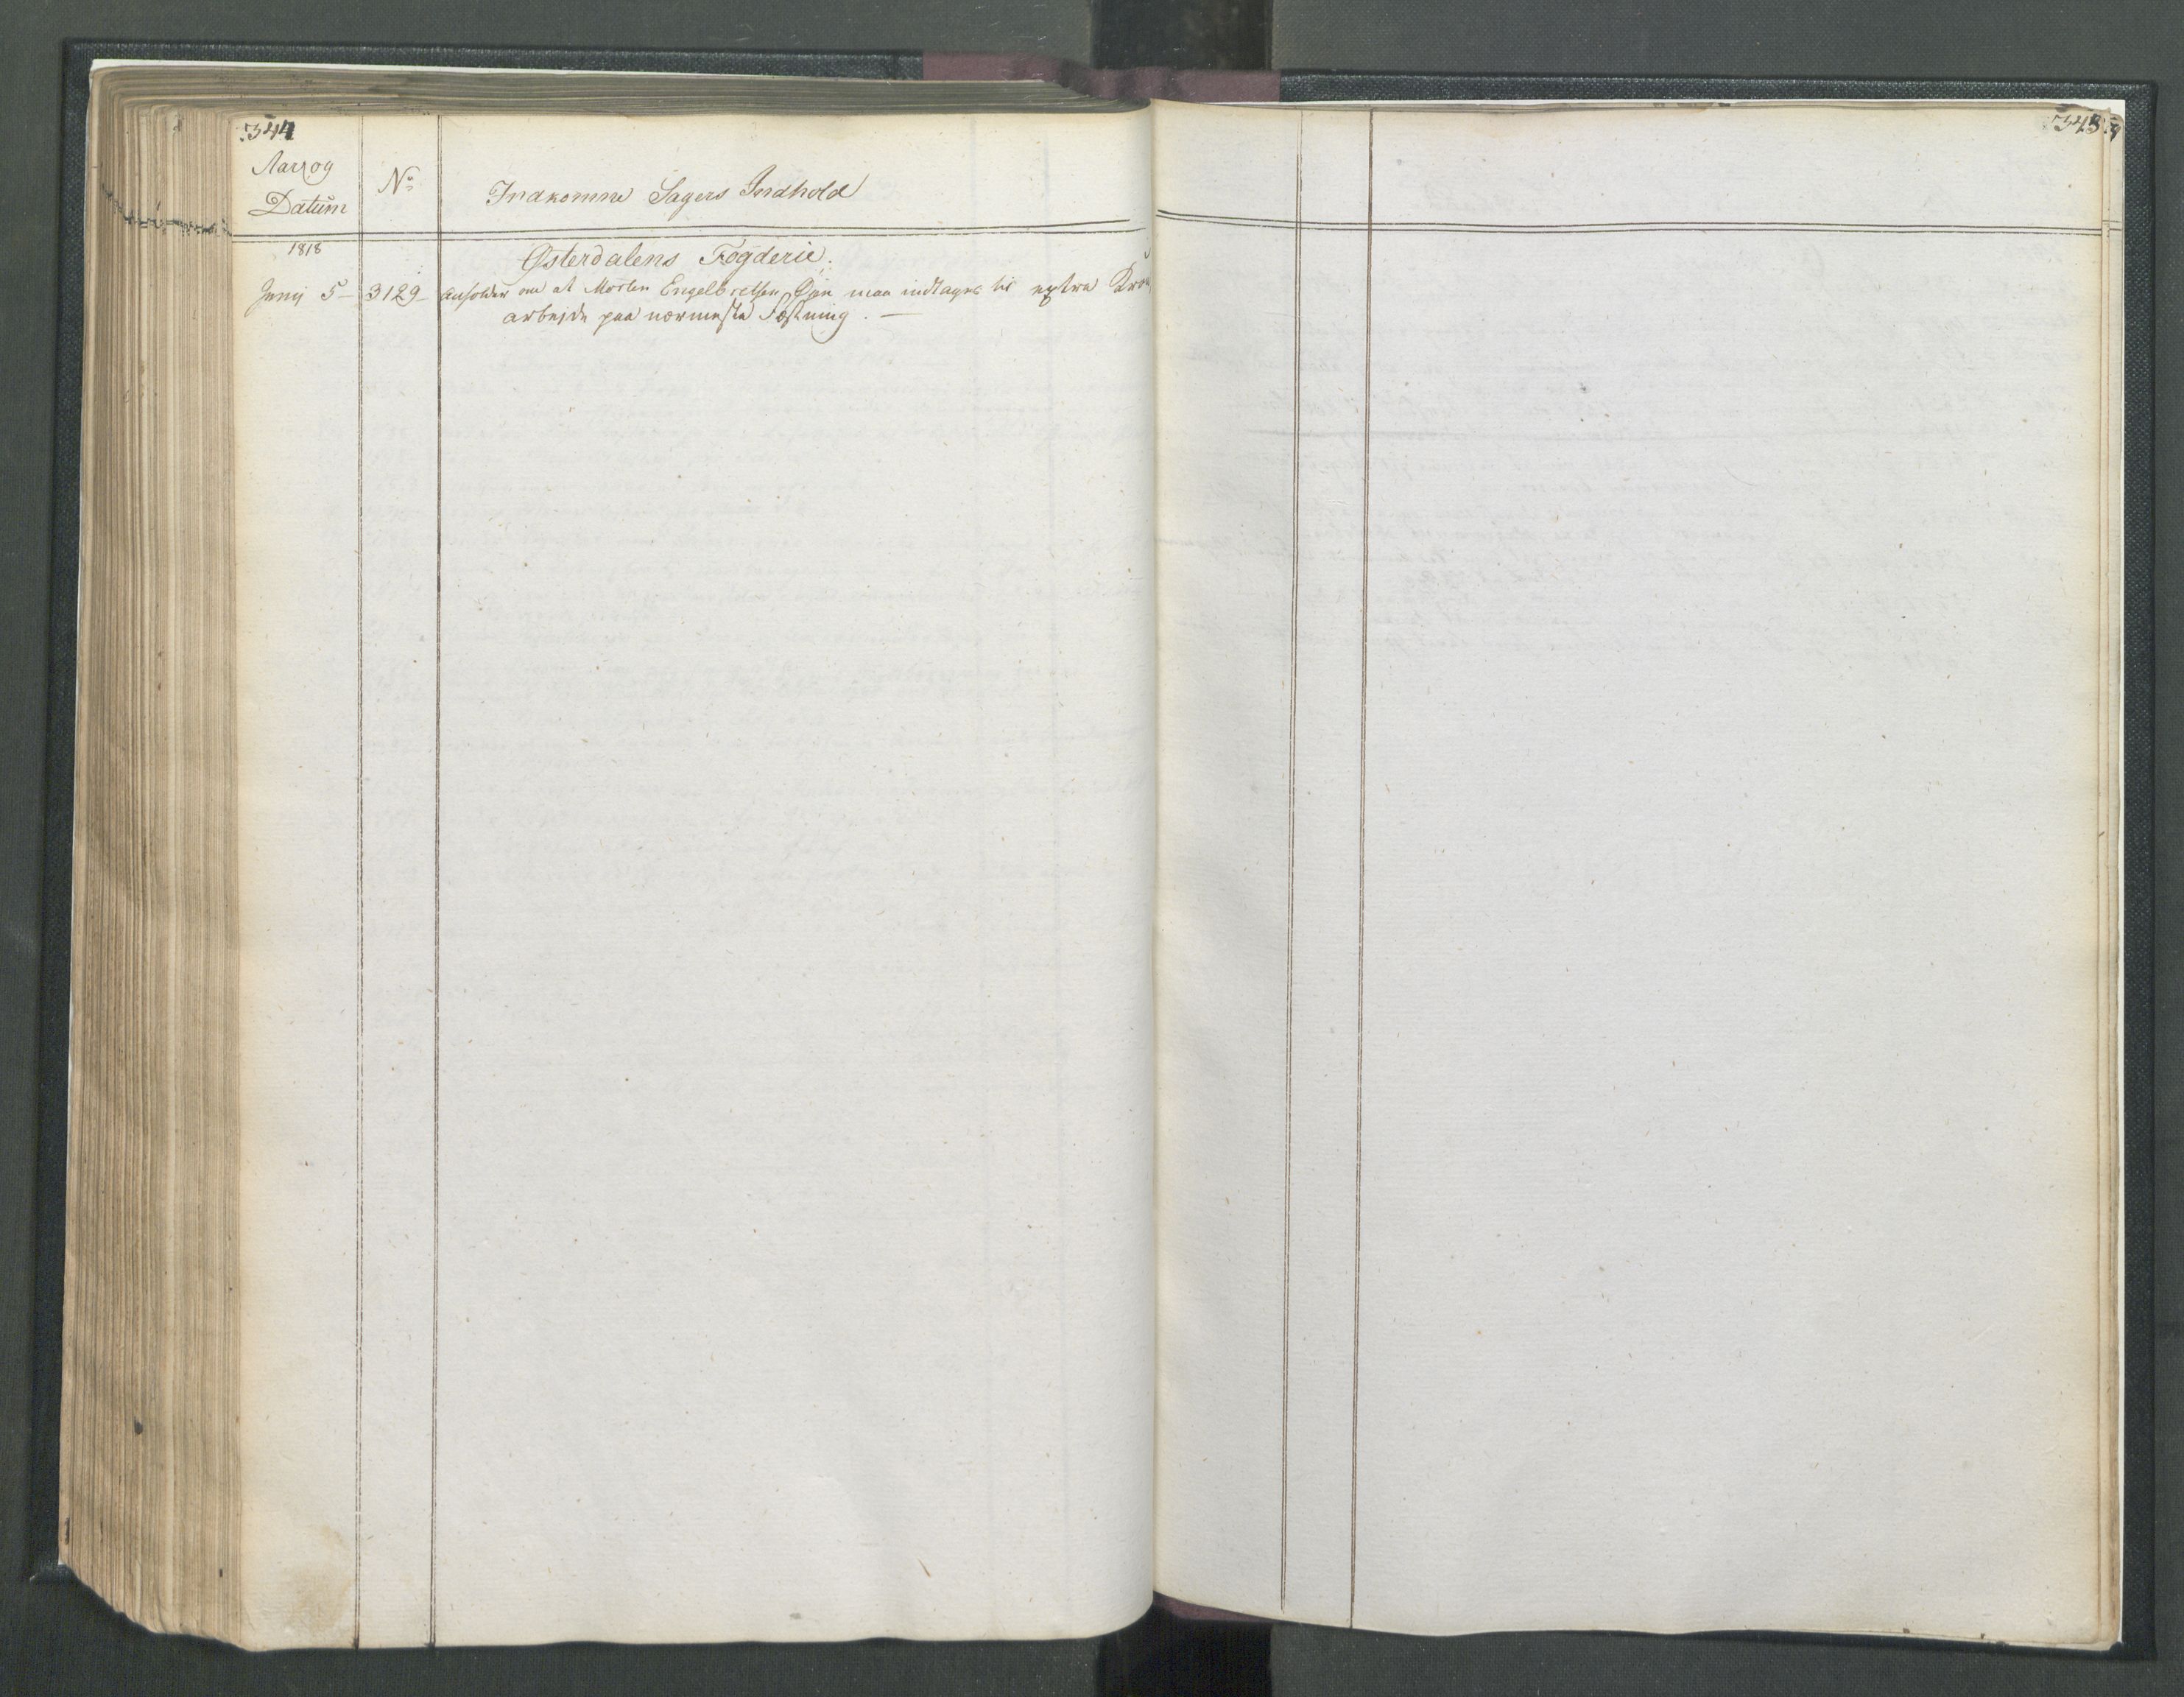 344
Aar og
Datum
No
Indkomne Sagers Indhold
1818
Østerdalens Fogderie.
Junij 5 – 3129 – anholder om at Morten Engelbretsen Øien maa indtages til extra Kron
arbejde paa nærmeste Fæstning. –
345